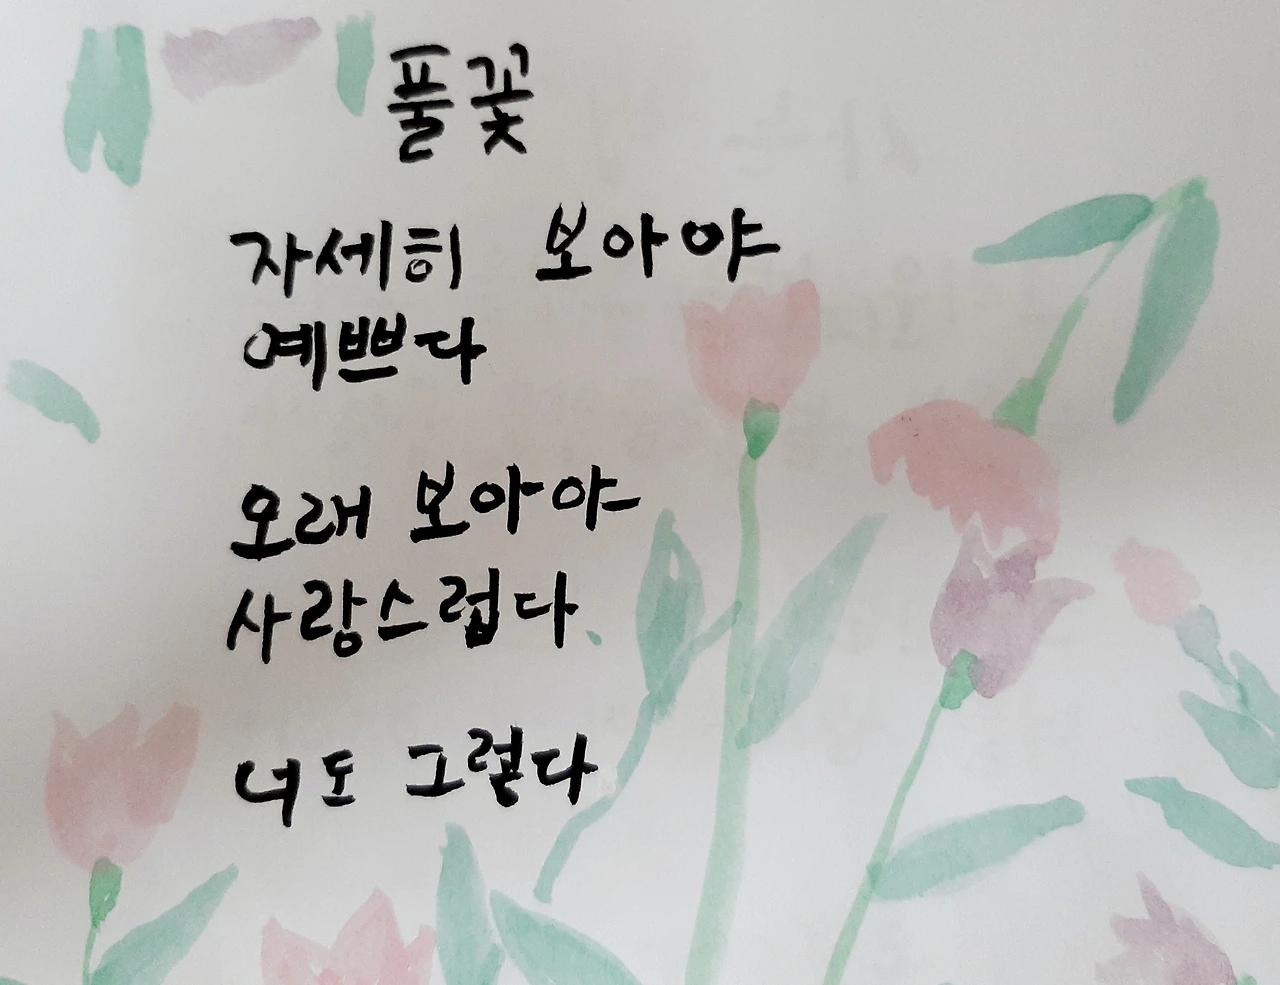 풀꽃
자세히 보아야
예쁘다
오래 보아야
사랑스럽다
너도 그렇다